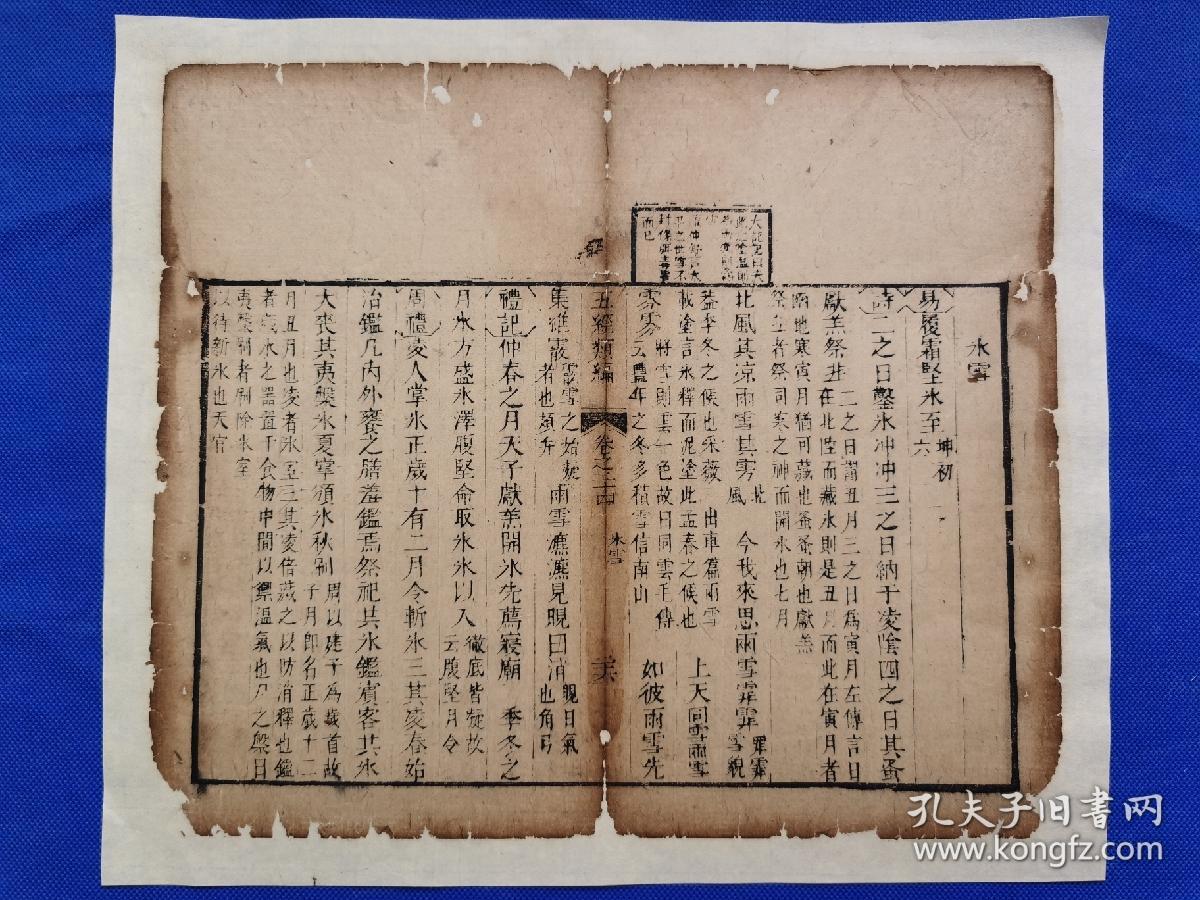 氷雪
易履霜堅氷至坤初六
詩二之日鑿氷冲冲三之日納于凌陰四之日其蚤
獻羔祭韭二之日謂丑月三之日爲寅月左傳言日
在北陸而藏氷則是丑月而此在寅月者
豳地寒寅月猶可藏也蚤蚤朝也獻羔
祭韭者祭司寒之神而開氷也七月
北風其凉雨雪其雱北風 今我來思雨雪霏霏霏霏雪貌
蓋季冬之候也采薇 出車篇雨雪
載塗言氷釋而泥塗此孟春之候也 上天同雲雨雪
雰雰將雪則雲一色故曰同雲毛傳
云豐年之冬多積雪信南山 如彼雨雪先
五經類編 卷之二十四 氷雪
集維霰霰雪之始凝者也頍弁 雨雪瀌瀌見晛曰消晛日氣也角弓
禮記仲春之月天子獻羔開氷先薦寢廟 季冬之
月氷方盛氷澤腹堅命取氷氷以入徹底皆凝故云腹堅月令
周禮凌人掌氷正歲十有二月令斬氷三其凌春始
治鑑凡內外饔之膳羞鑑焉祭祀共氷鑑賓客共氷
大喪共夷槃氷夏掌頒氷秋刷周以建子爲歲首故
子月即名正歲十二
月丑月也凌者氷室三其凌倍藏之以防消釋也鑑
者盛氷之器置于食物中間以禦溫氣也尸之槃曰
夷槃刷者刷除氷室
以待新氷也天官
孔夫子旧书网
www.kongfz.com